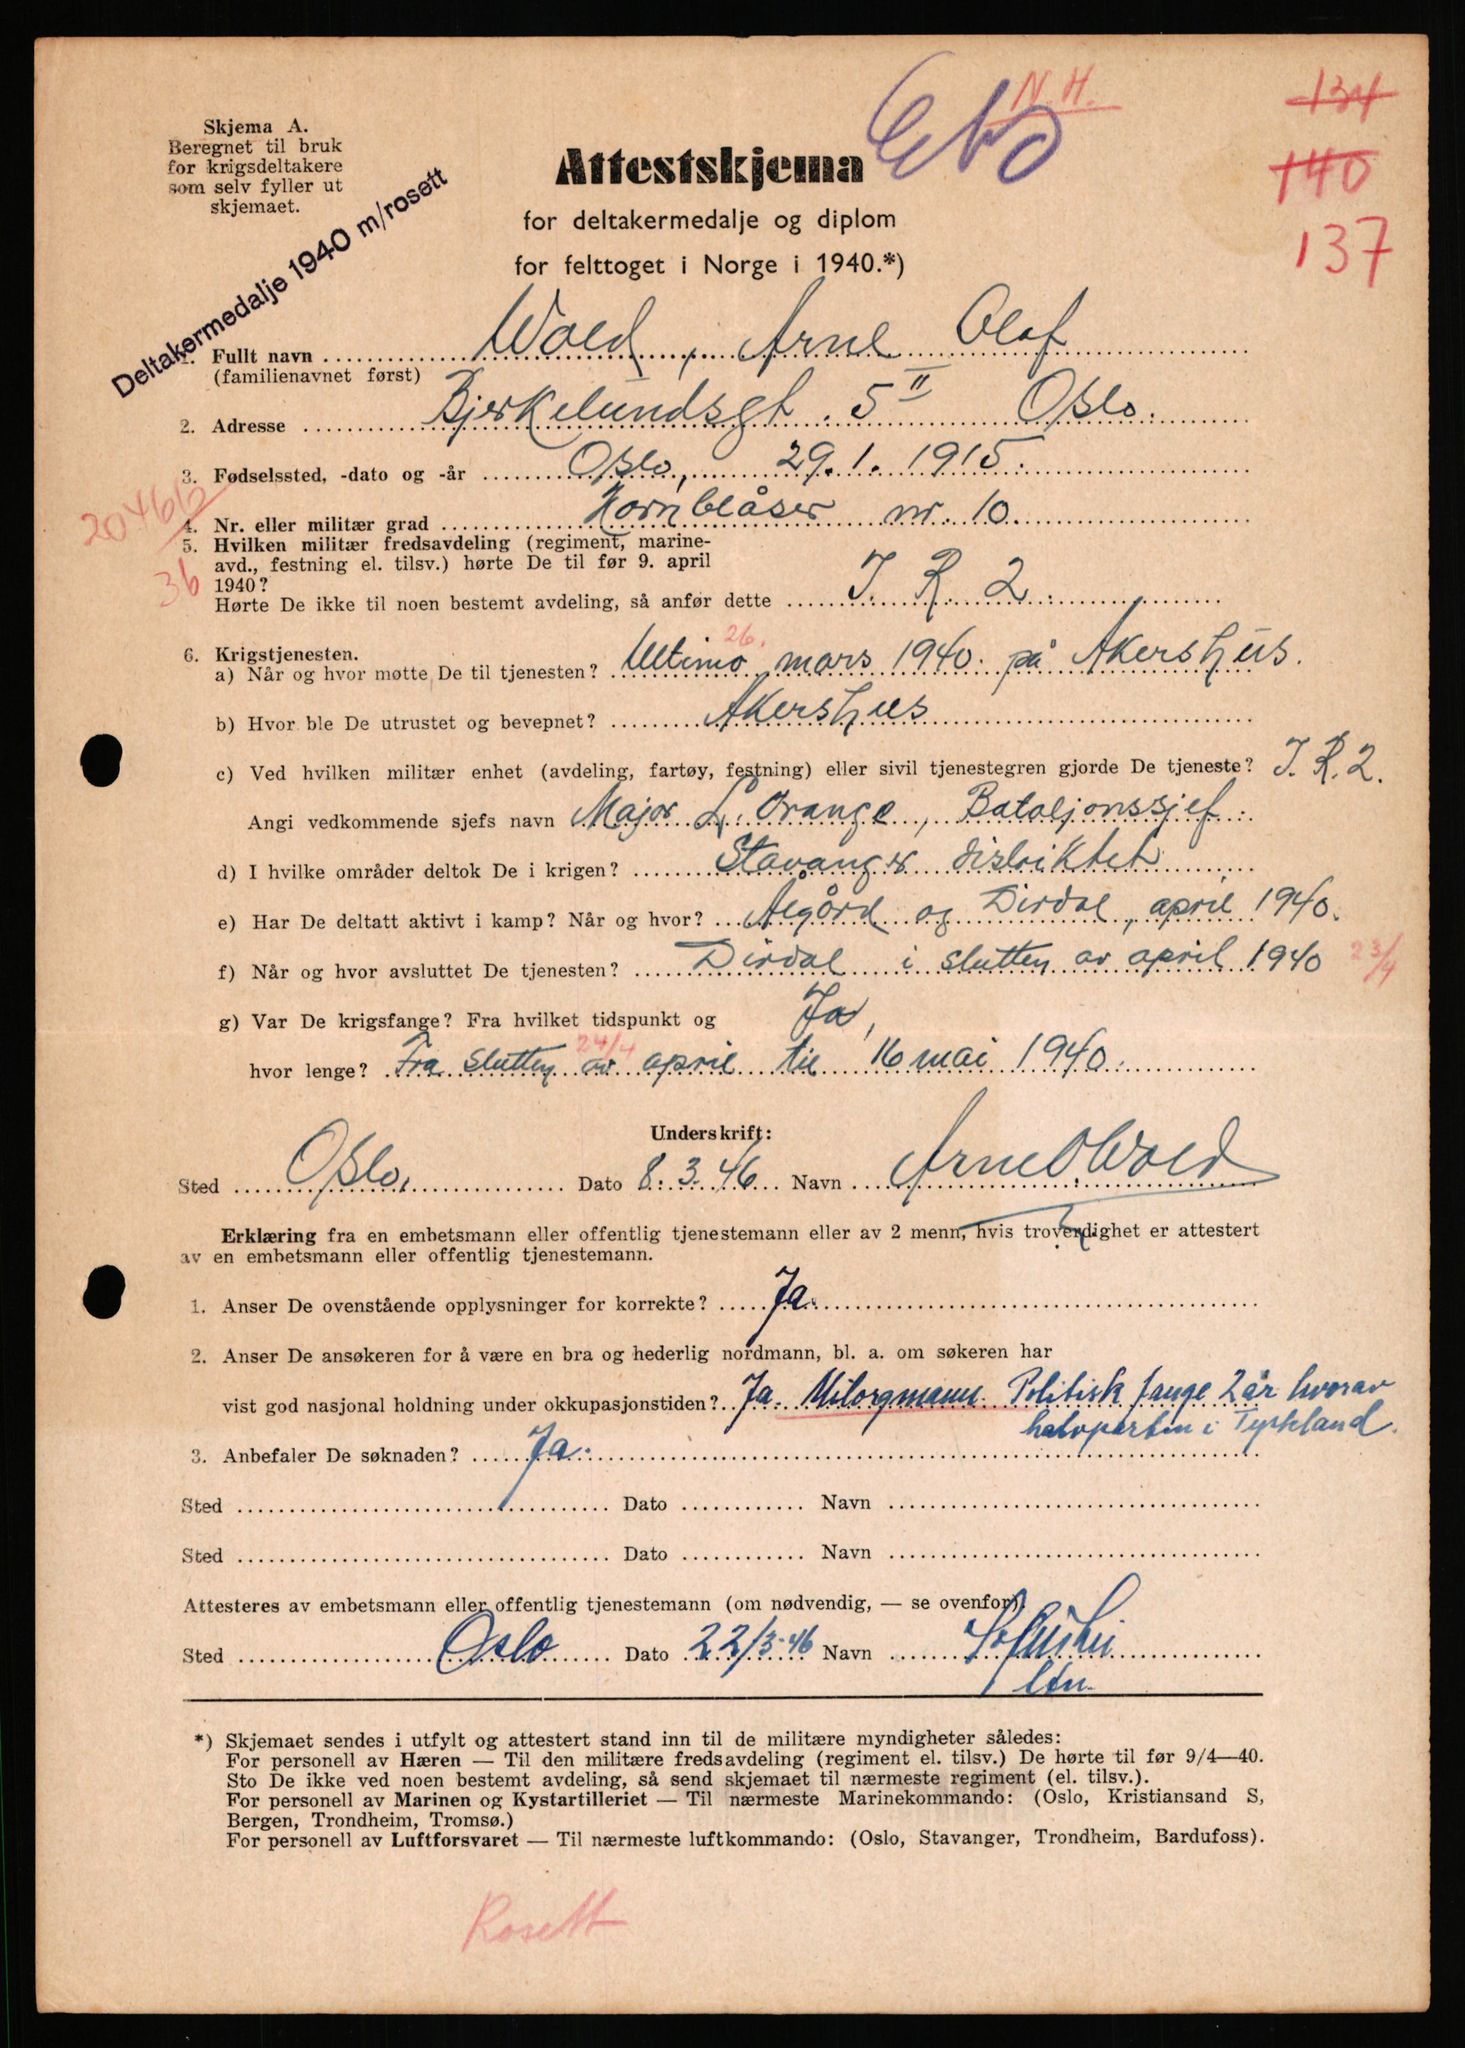 N. H.
134
140
137
Skjema A.
Beregnet til bruk
for krigsdeltakere
som selv fyller ut
skjemaet.
Deltakermedalje 1940 m/rosett
Attestskjema
for deltakermedalje og diplom
for felttoget i Norge i 1940.*)
1. Fullt navn Wold, Arne Olaf
(familienavnet først)
2. Adresse Bjerkelundsgt. 5 II Oslo.
3. Fødselssted, -dato og -år Oslo, 29.1.1915.
20466
36
4. Nr. eller militær grad Hornblåser nr. 10
5. Hvilken militær fredsavdeling (regiment, marine-
avd., festning el. tilsv.) hørte De til før 9. april
1940?
Hørte De ikke til noen bestemt avdeling, så anfør dette J. R. 2.
6. Krigstjenesten.
26.
a) Når og hvor møtte De til tjenesten? Ultimo mars 1940. på Akershus.
b) Hvor ble De utrustet og bevepnet? Akershus
c) Ved hvilken militær enhet (avdeling, fartøy, festning) eller sivil tjenestegren gjorde De tjeneste? J. R. 2.
Angi vedkommende sjefs navn Major L'Orange, Bataljonssjef.
d) I hvilke områder deltok De i krigen? Stavanger distriktet
e) Har De deltatt aktivt i kamp? Når og hvor? Ålgård og Dirdal, april 1940.
f) Når og hvor avsluttet De tjenesten? Dirdal i slutten av april 1940 23/4
g) Var De krigsfange? Fra hvilket tidspunkt og Ja,
24/4
hvor lenge? Fra slutten av april til 16 mai 1940.
Underskrift:
Sted Oslo, Dato 8.3.46 Navn Arne O Wold
Erklæring fra en embetsmann eller offentlig tjenestemann eller av 2 menn, hvis troverdighet er attestert
av en embetsmann eller offentlig tjenestemann.
1. Anser De ovenstående opplysninger for korrekte? Ja.
2. Anser De ansøkeren for å være en bra og hederlig nordmann, bl. a. om søkeren har
vist god nasjonal holdning under okkupasjonstiden? Ja. Milorgmann. Politisk fange 2 år hvorav
halvparten i Tyskland.
3. Anbefaler De søknaden? Ja.
Sted Dato Navn
Sted Dato Navn
Attesteres av embetsmann eller offentlig tjenestemann (om nødvendig, — se ovenfor).
Sted Oslo Dato 22/3-46 Navn
*) Skjemaet sendes i utfylt og attestert stand inn til de militære myndigheter således:
For personell av Hæren — Til den militære fredsavdeling (regiment el. tilsv.) De hørte til før 9/4—40.
Sto De ikke ved noen bestemt avdeling, så send skjemaet til nærmeste regiment (el. tilsv.).
For personell av Marinen og Kystartilleriet — Til nærmeste Marinekommando: (Oslo, Kristiansand S,
Bergen, Trondheim, Tromsø.)
For personell av Luftforsvaret — Til nærmeste luftkommando: (Oslo, Stavanger, Trondheim, Bardufoss).
Rosett